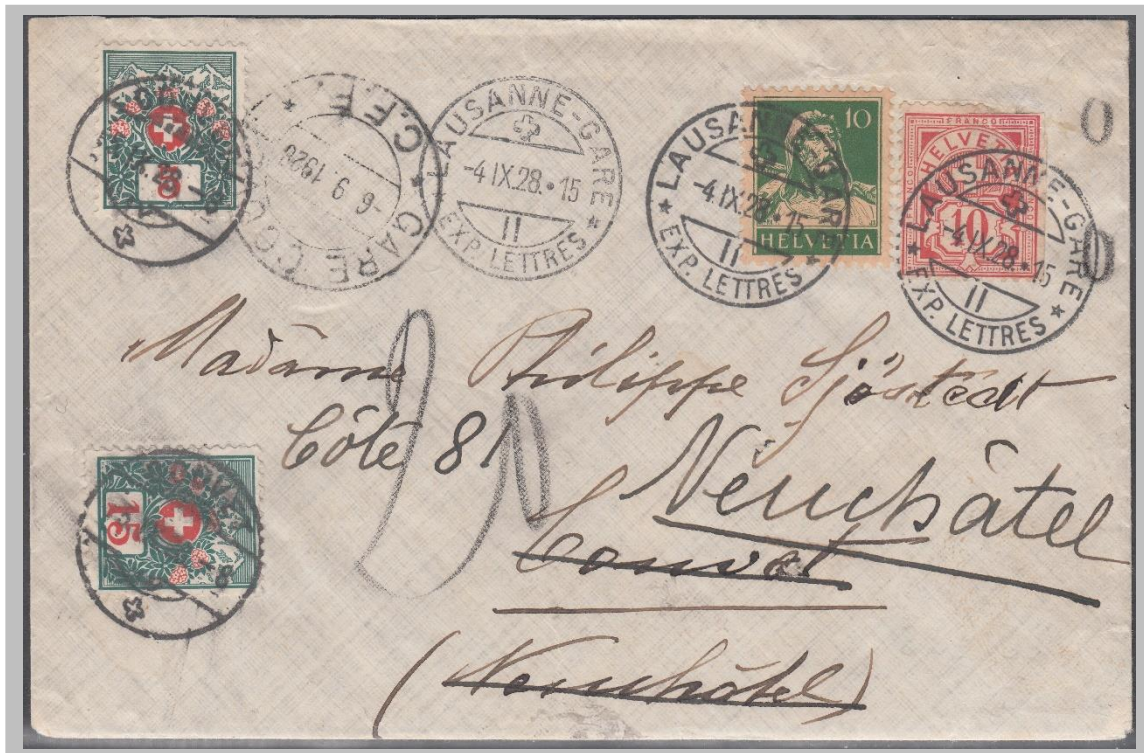 5
GARE C.F.F.
-6 9 1928
LAUSANNE-GARE
-4.IX.28.•15
II
EXP. LETTRES
10
HELVETIA
LAUSANNE-GARE
-4.IX.28.•15
II
EXP. LETTRES
FRANCO
HELVETIA
10
LAUSANNE-GARE
-4.IX.28.•15
II
EXP. LETTRES
0
0
Madame Philippe Sjöstedt
Côte 81
Neuchâtel
Couvet
(Neuchâtel)
20
15
COUVET